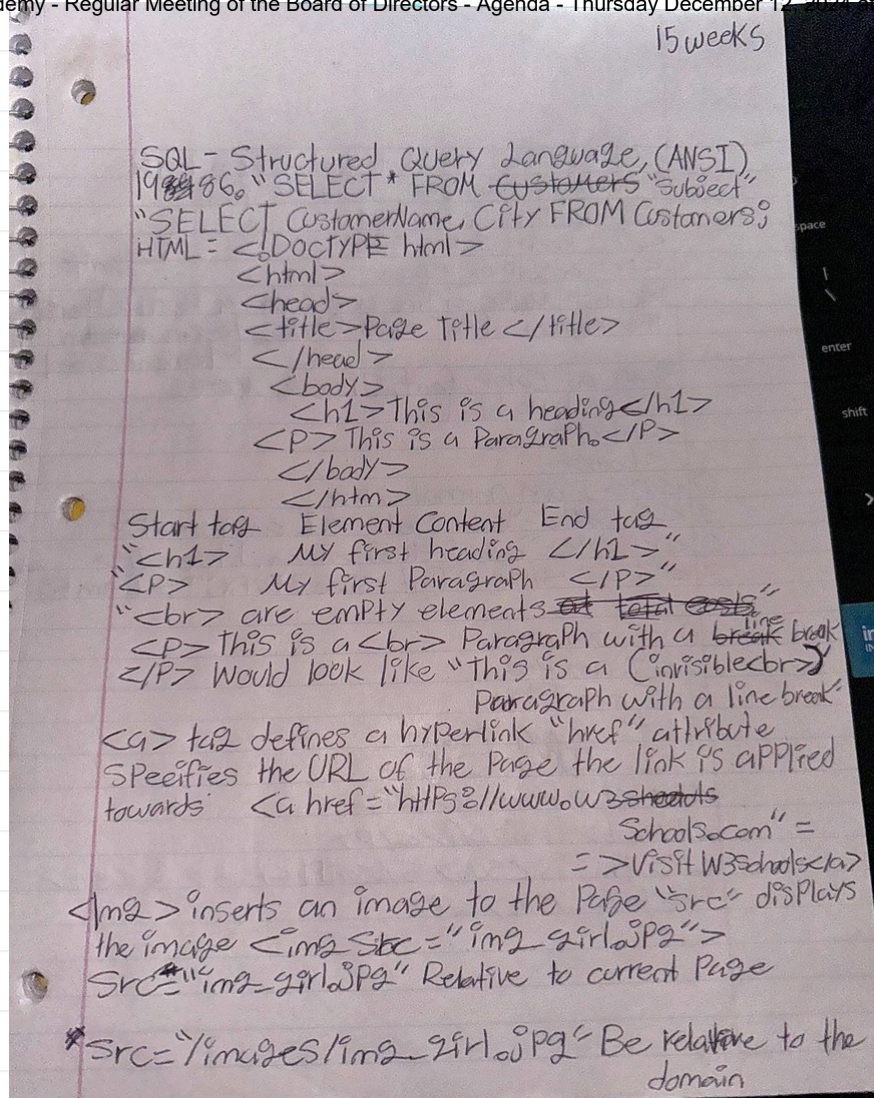 demy - Regular Meeting of the Board of Directors - Agenda - Thursday December 12, 2024 at
15 weeks
SQL - Structured Query Language, (ANSI)
1986. "SELECT * FROM Customers "Subject"
"SELECT CustomerName, City FROM Customers;
HTML = <!DOCTYPE html>
<html>
<head>
<title>Page Title </title>
</head>
<body>
<h1>This is a heading</h1>
<P> This is a Paragraph.</P>
</body>
</htm>
Start tag Element Content End tag
"<h1> My first heading </h1>"
"<P> My first Paragraph </P>"
"<br> are empty elements"
<P> This is a <br> Paragraph with a break line break
</P> Would look like "This is a (invisible<br>)
Paragraph with a line break"
<a> tag defines a hyperlink "href" attribute
Specifies the URL of the Page the link is applied
towards <a href="https://www.w3
Schools.com" =
= >Visit W3Schools</a>
<Img> inserts an image to the Page "src" displays
the image <img Src="img_girl.jpg">
Src="img_girl.jpg" Relative to current Page
* Src="/images/img_girl.jpg" Be relative to the
domain
space
enter
shift